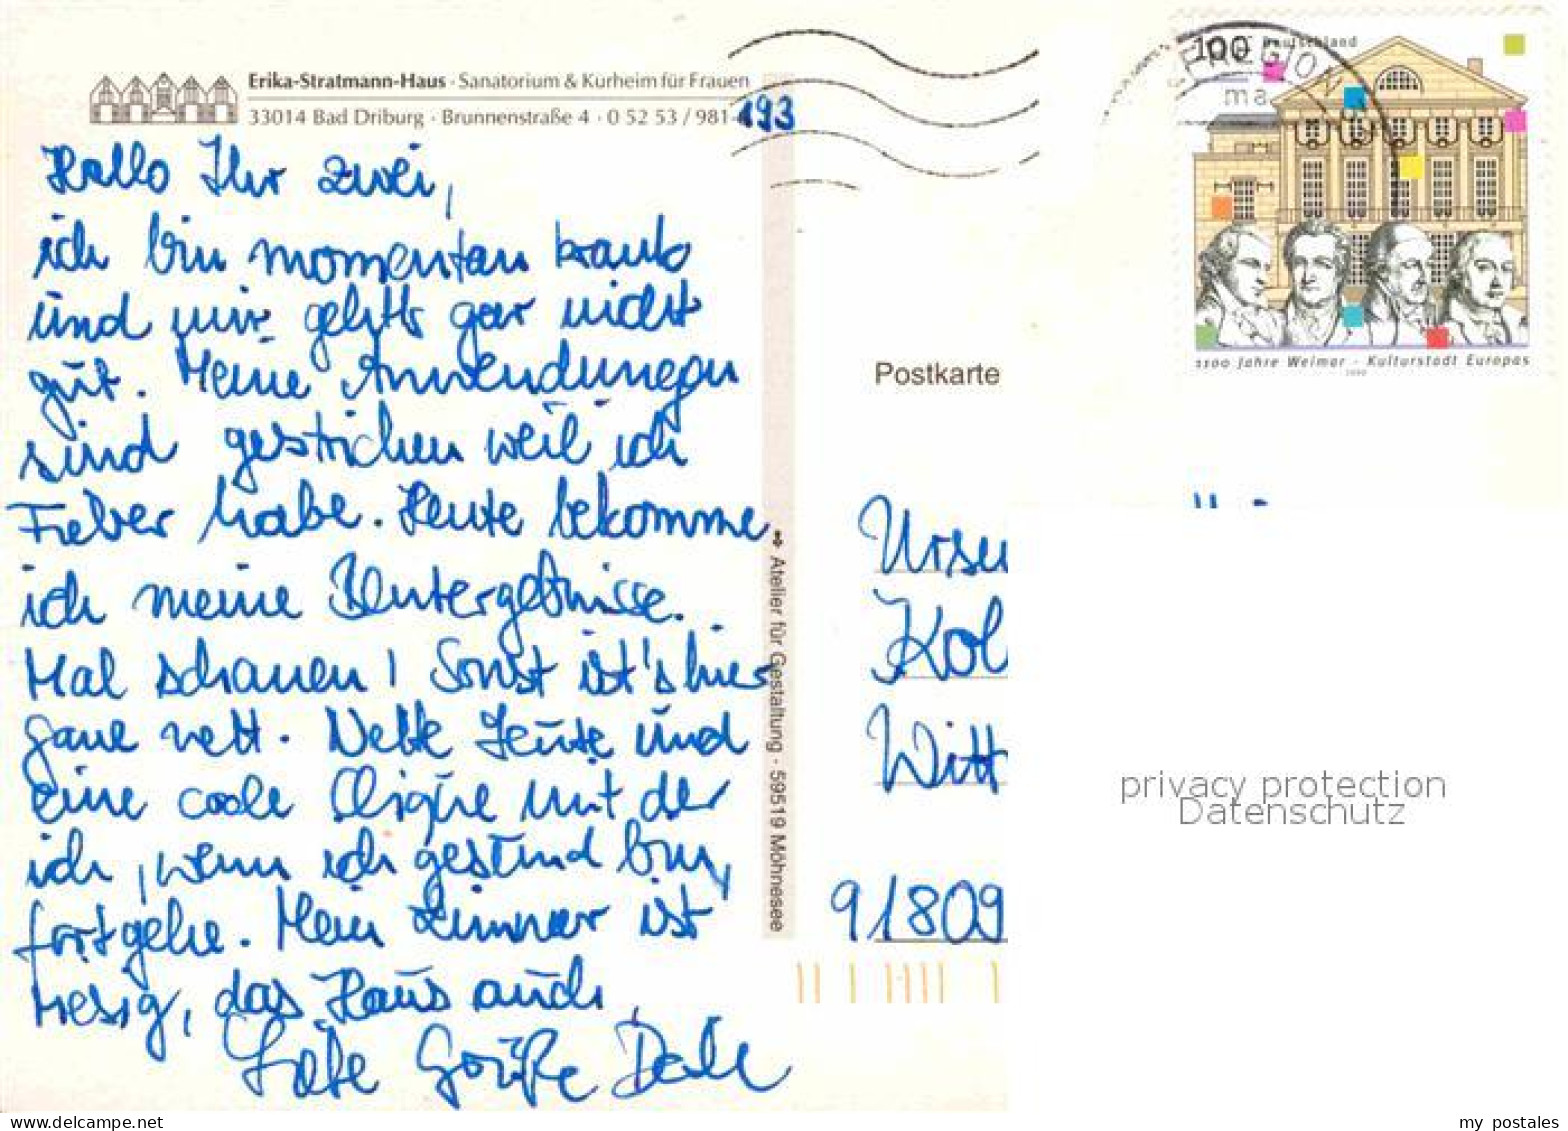 Erika-Stratmann-Haus · Sanatorium & Kurheim für Frauen
33014 Bad Driburg · Brunnenstraße 4 · 0 52 53 / 981-
193
Hallo Ihr zwei,
ich bin momentan krank
und mir geht's gar nicht
gut. Meine Anwendungen
sind gestrichen weil ich
Fieber habe. Heute bekomme
ich meine Blutergebnisse.
Mal schauen! Sonst ist's hier
ganz nett. Nette Leute und
eine coole Clique mit der
ich, wenn ich gesund bin,
fortgehe. Mein Zimmer ist
riesig, das Haus auch.
Liebe Grüße
Atelier für Gestaltung · 59519 Möhnesee
100 Deutschland
REGION
ma
1100 Jahre Weimar - Kulturstadt Europas
1999
Postkarte
Ursu
Kol
Witt
91809
privacy protection
Datenschutz
my postales